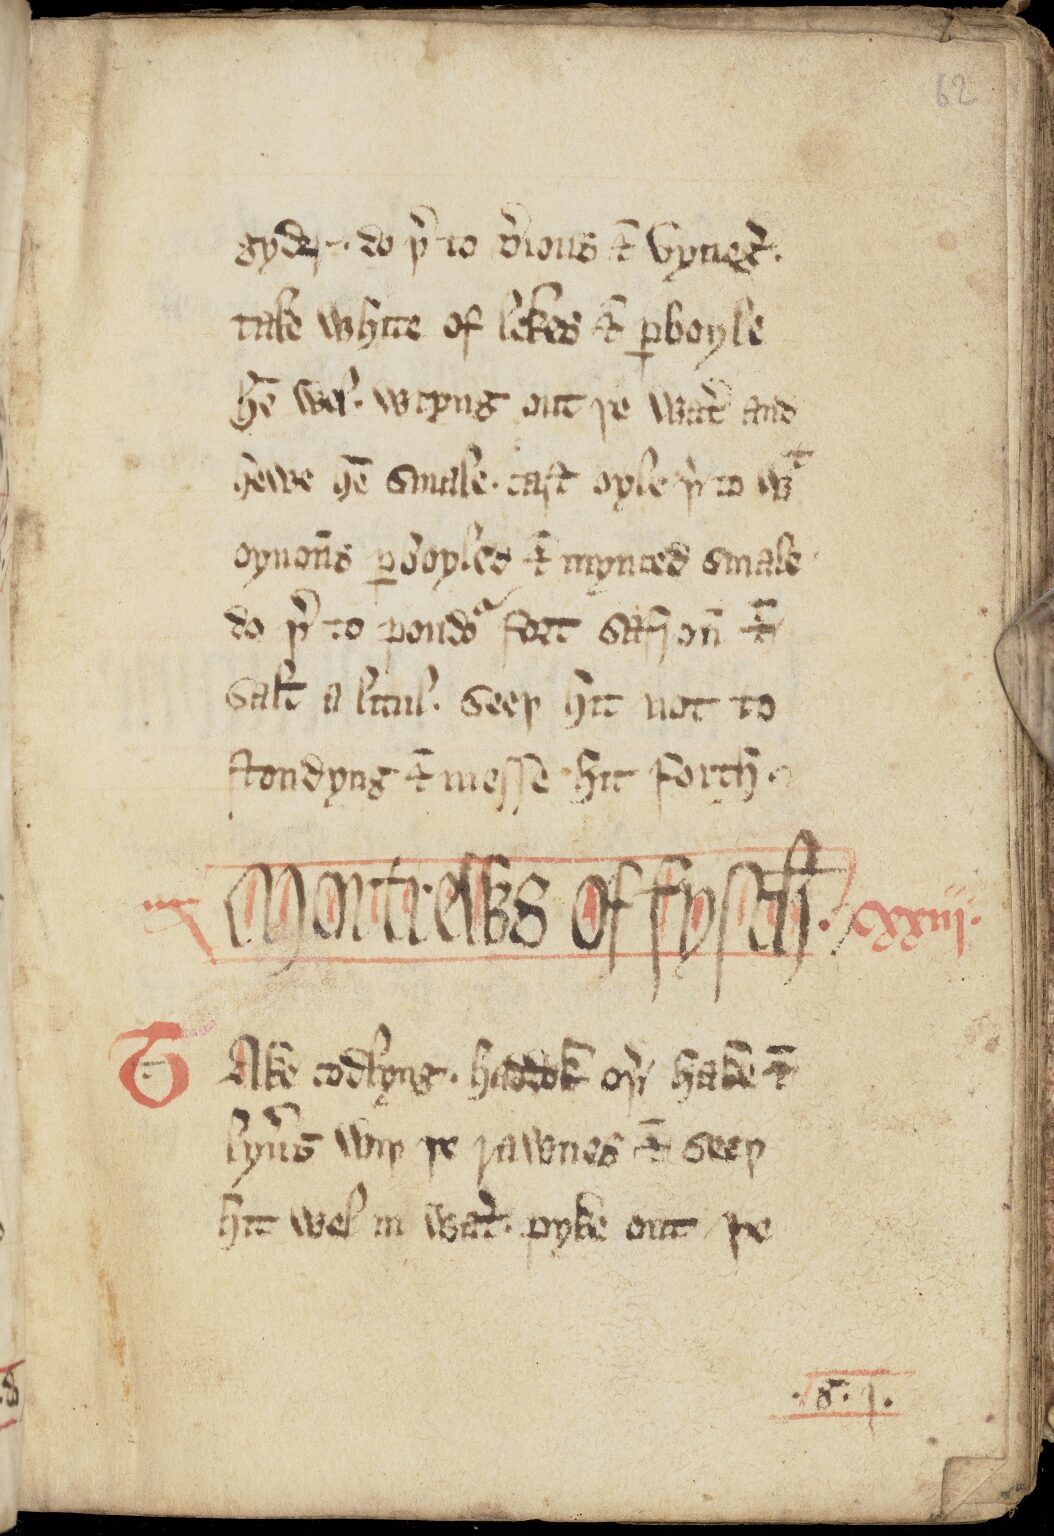 62
gyder. do þ̉ to v̉ious ⁊ vyneg̉.
take white of lekes ⁊ ꝑboyle
hē wel. wryng out þe wat̉ and
hewe hē smale. cast oyle þ̉ to wͭ
oynoūs ꝑboyled ⁊ mynced smale
do þ̉ to poudoᵘ fort safroū ⁊
salt a litul. seeþ hit not to
stondyng ⁊ messe hit forth.
Mortrews of fysch. .Cxxiii.
Take codlyng. haddok oþ̉ hake ⁊
lyủs wiþ þe rawnes ⁊ seeþ
hit wel in wat̉. pyke out þe